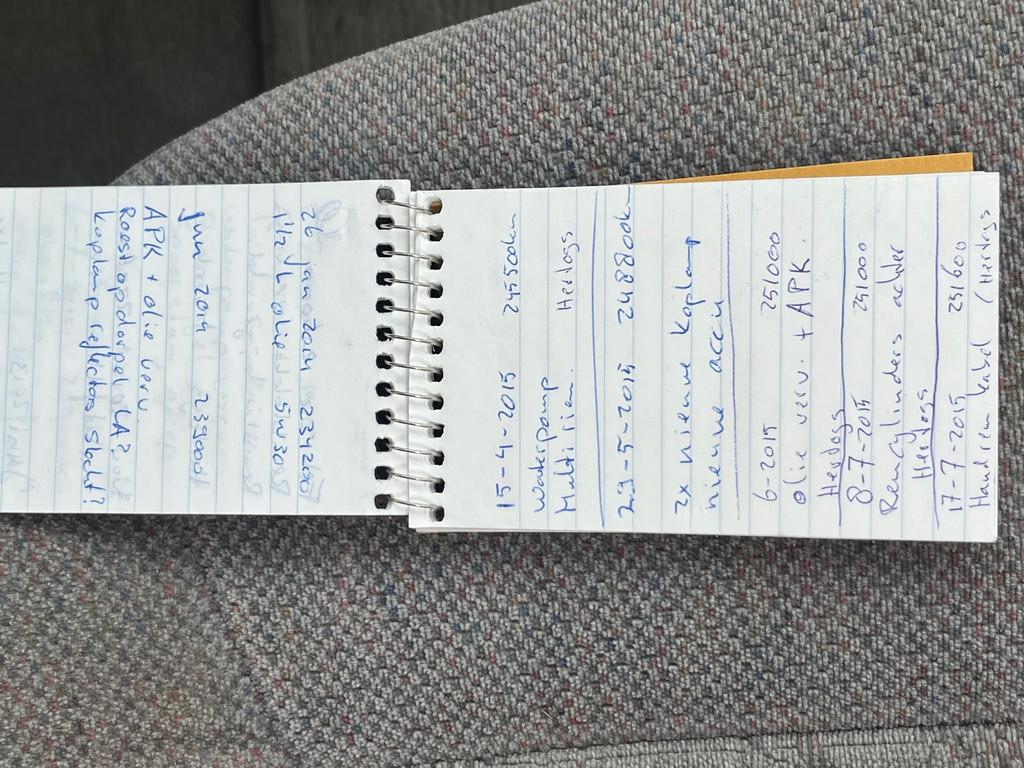 26 jan 2014 234200
1 1/2 L olie 5W30
Juni 2014 235000
APK + olie verv.
Roest op dorpel LA?
Koplamp reflectors slecht?
15-4-2015 245500km
Waterpomp
Multiriem. Herdogs
29-5-2015 248800km
2x nieuwe Koplamp
nieuwe accu
6-2015 251000
olie verv. + APK.
Herdogs
8-7-2015 251000
Remcylinders achter
Herdogs
17-7-2015 251600
Handrem kabel (Herdogs